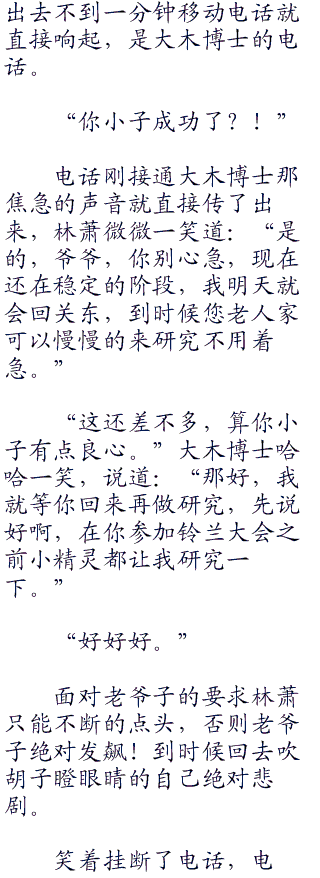 出去不到一分钟移动电话就
直接响起，是大木博士的电
话。
“你小子成功了？！”
电话刚接通大木博士那
焦急的声音就直接传了出
来，林萧微微一笑道：“是
的，爷爷，你别心急，现在
还在稳定的阶段，我明天就
会回关东，到时候您老人家
可以慢慢的来研究不用着
急。”
“这还差不多，算你小
子有点良心。”大木博士哈
哈一笑，说道：“那好，我
就等你回来再做研究，先说
好啊，在你参加铃兰大会之
前小精灵都让我研究一
下。”
“好好好。”
面对老爷子的要求林萧
只能不断的点头，否则老爷
子绝对发飙！到时候回去吹
胡子瞪眼睛的自己绝对悲
剧。
笑着挂断了电话，电